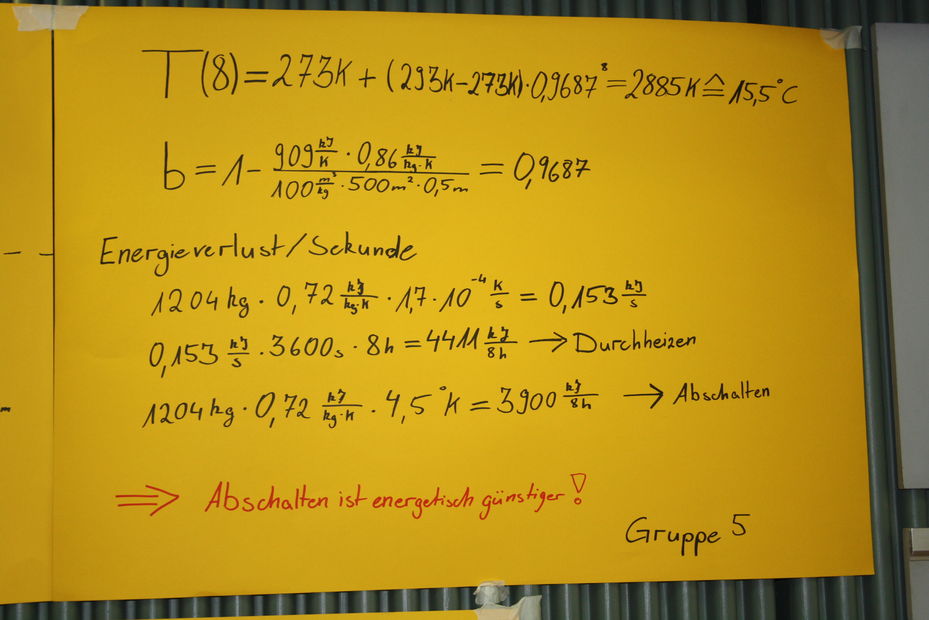 T(8) = 273K + (293K-273K)·0,9687⁸ = 2885K ≙ 15,5°C
b = 1 - (909 kJ/K · 0,86 kJ/kg·K) / (100 m³/kg · 500m² · 0,5m) = 0,9687
Energieverlust/Sekunde
1204kg · 0,72 kJ/kg·K · 1,7·10⁻⁴ K/s = 0,153 kJ/s
0,153 kJ/s · 3600s · 8h = 4411 kJ/8h → Durchheizen
1204kg · 0,72 kJ/kg·K · 4,5°K = 3900 kJ/8h → Abschalten
⇒ Abschalten ist energetisch günstiger!
Gruppe 5